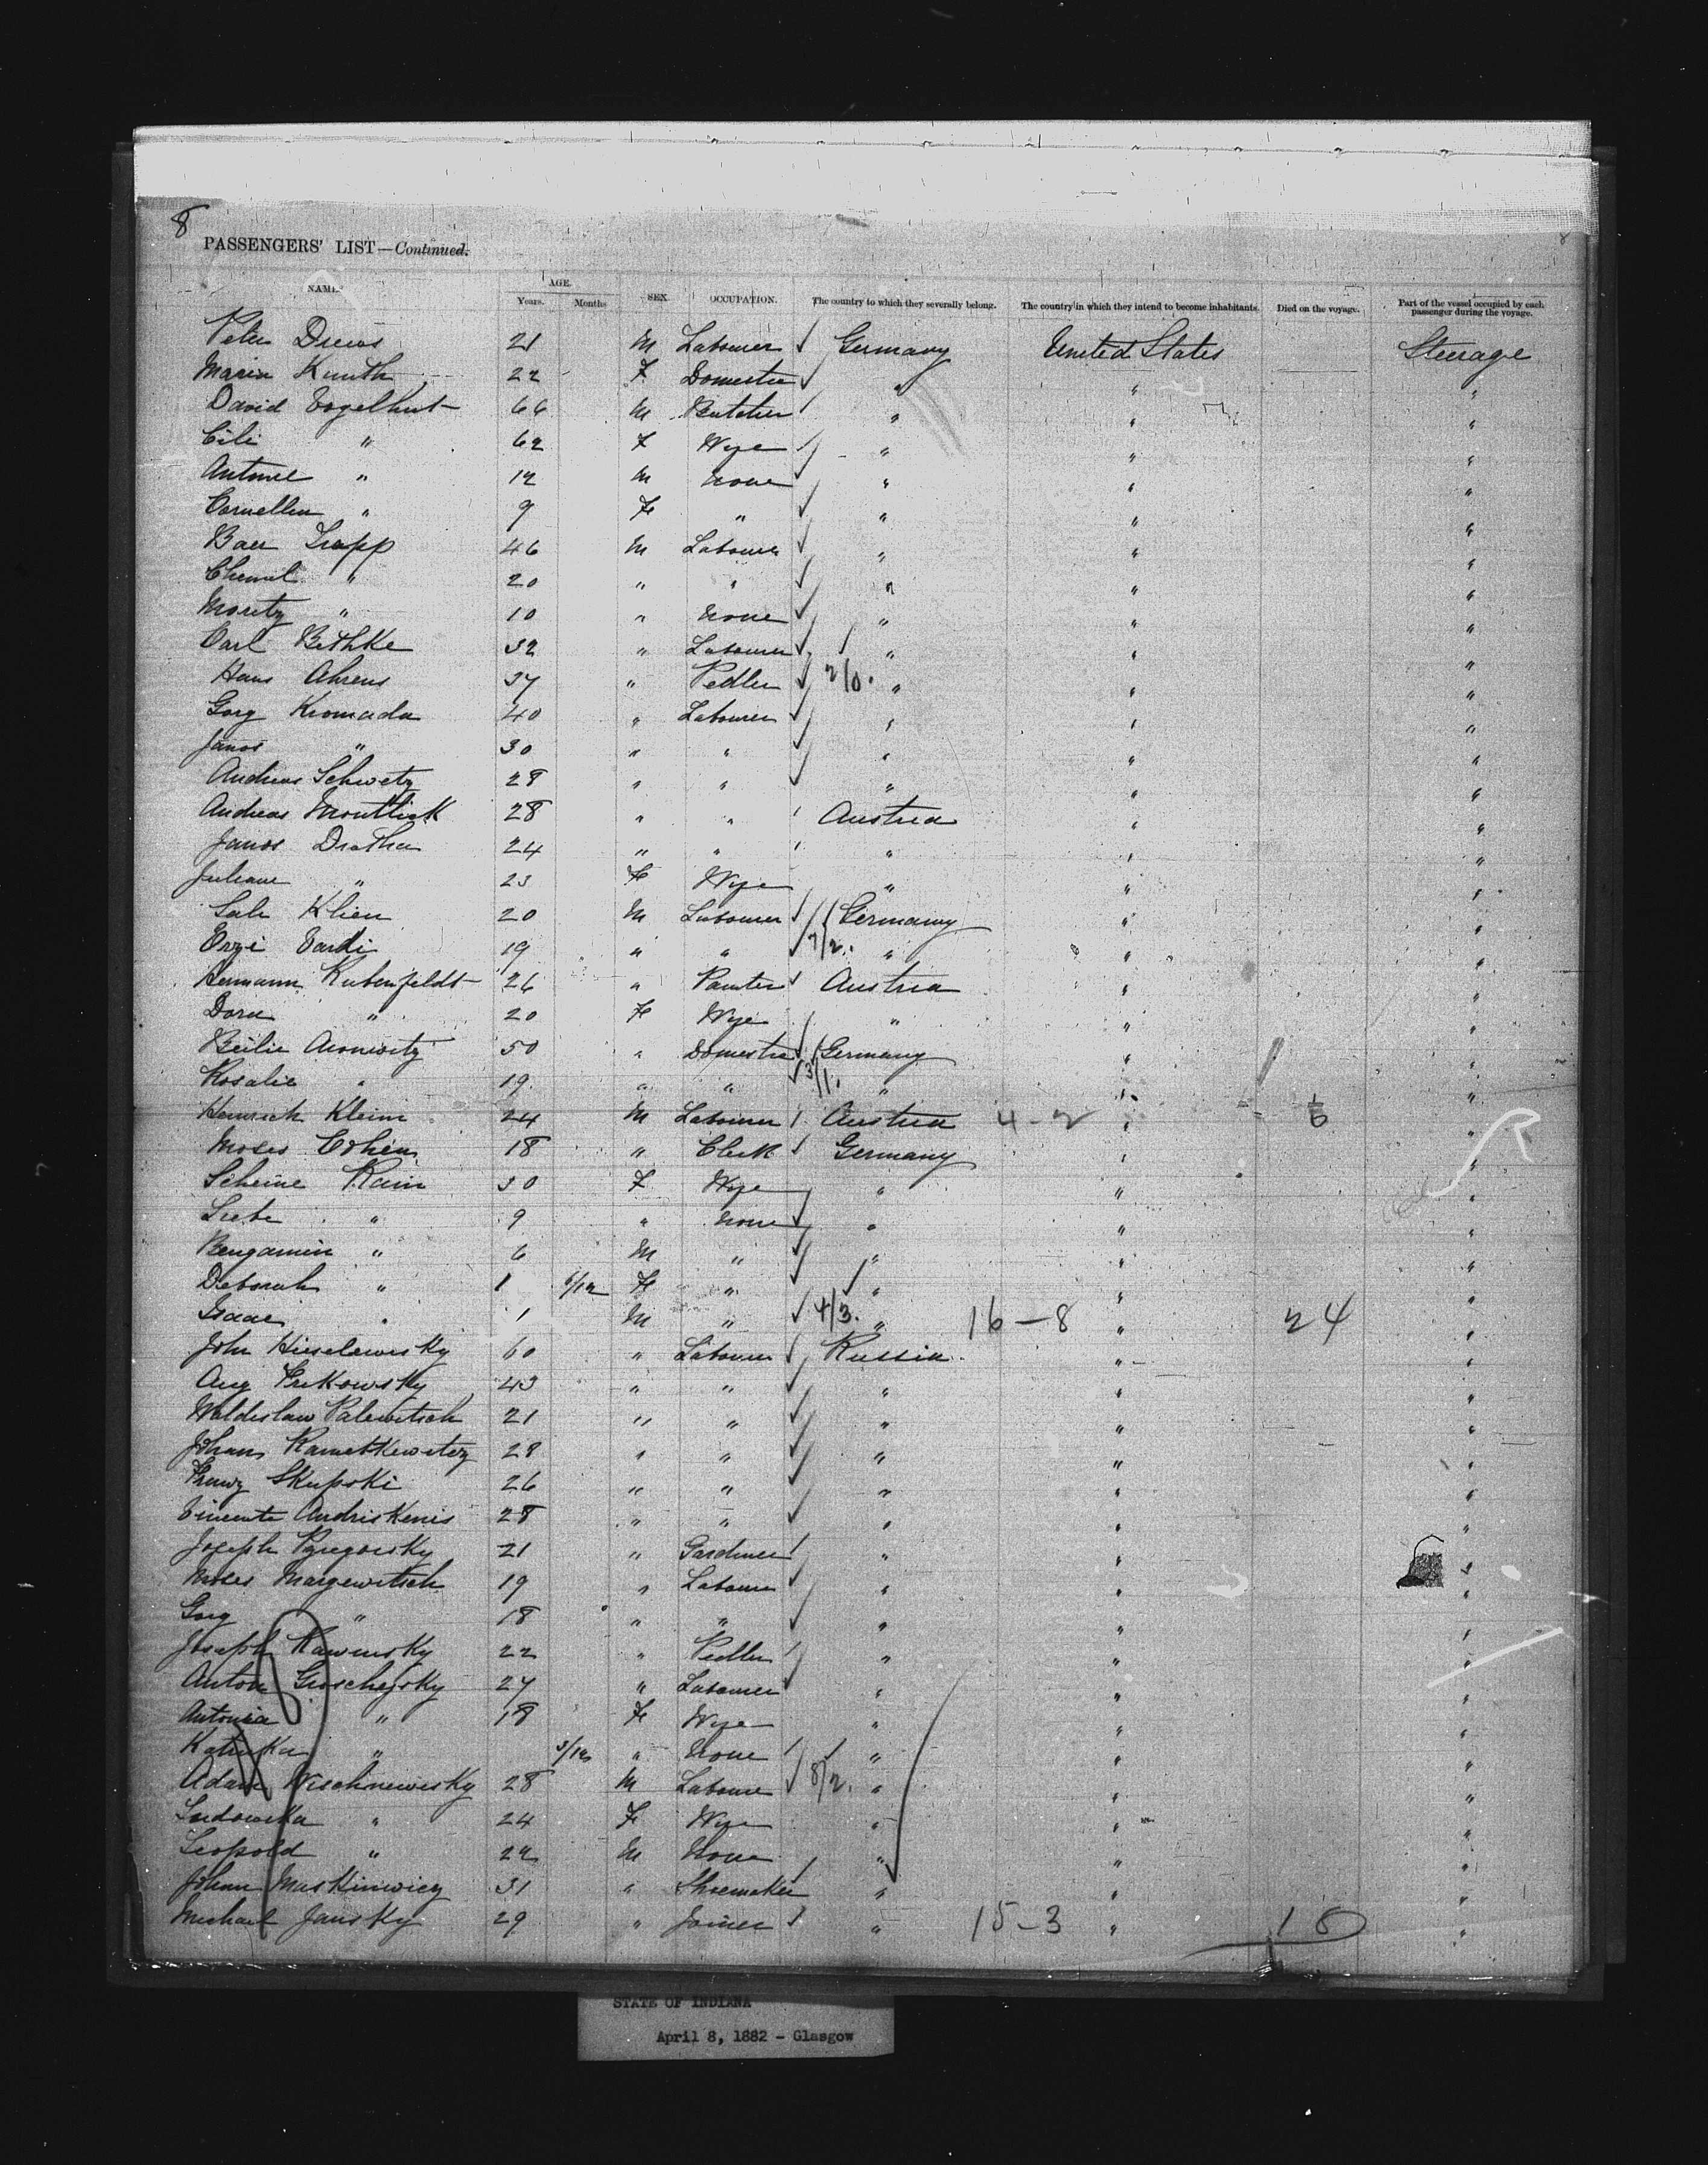 8
8
PASSENGERS' LIST—Continued.
NAME. AGE. Years. Months SEX. OCCUPATION. The country to which they severally belong. The country in which they intend to become inhabitants. Died on the voyage. Part of the vessel occupied by each passenger during the voyage.
Peter Drews 21 M Labourer Germany United States Steerage
Maria Kunth 22 F Domestic " " "
David Vogelhut 66 M Butcher " " "
Cili " 62 F Wife " " "
Antonie " 12 M None " " "
Cornellia " 9 F " " " "
Baer Trapp 46 M Labourer " " "
" 20 " " " " "
Moritz " 10 " None " " "
Carl Bethke 32 " Labourer " " "
Hans Ahrens 37 " Pedler 2/0. " " "
Gorg Kromada 40 " Labourer " " "
Janos " 30 " " " " "
Andreas Schwetz 28 " " " " "
Andreas 28 " " Austria " "
Janos Dratha 24 " " " " "
Juliane " 23 F Wife " " "
Klien 20 M Labourer Germany " "
Vardi 19 " " 7/2. " " "
Hermann Rubenfeldt 26 " Painter Austria " "
Dora " 20 F Wife " " "
Beilie Aronwitz 50 " Domestic Germany " "
Rosalie " 19 " " 3/1. " " "
Heinrich Klein 24 M Labourer Austria 4-2 " 6 "
Moses Cohen 18 " Clerk Germany " "
Scheine Kain 30 F Wife " " "
Liebe " 9 " None " " "
Bengamin " 6 M " " " "
Deborah " 1 6/12 F " " " "
Isaac " 1 M " 4/3. " 16-8 " 24 "
John 60 " Labourer Russia " "
Aug 43 " " " " "
Waldislaw Palewitsch 21 " " " " "
Johans 28 " " " " "
Skupski 26 " " " " "
Vincente Andriskenis 28 " " " " "
Joseph 21 " Gardiner " " "
Moses Margewitsch 19 " Labourer " " "
Gorg " 18 " " " " "
Joseph Kawensky 22 " Pedler " " "
Anton 27 " Labourer " " "
Antonia " 18 F Wife " " "
Katinka " 3/12 " None " " "
Adam Wischnewesky 28 M Labourer 8/2. " " "
Ludowika " 24 F Wife " " "
Leopold " 22 M None " " "
Johan Maskinwicz 31 " Shoemaker " " "
Michael Jansky 29 " Joiner " 15-3 " 18 "
STATE OF INDIANA
April 8, 1882 - Glasgow